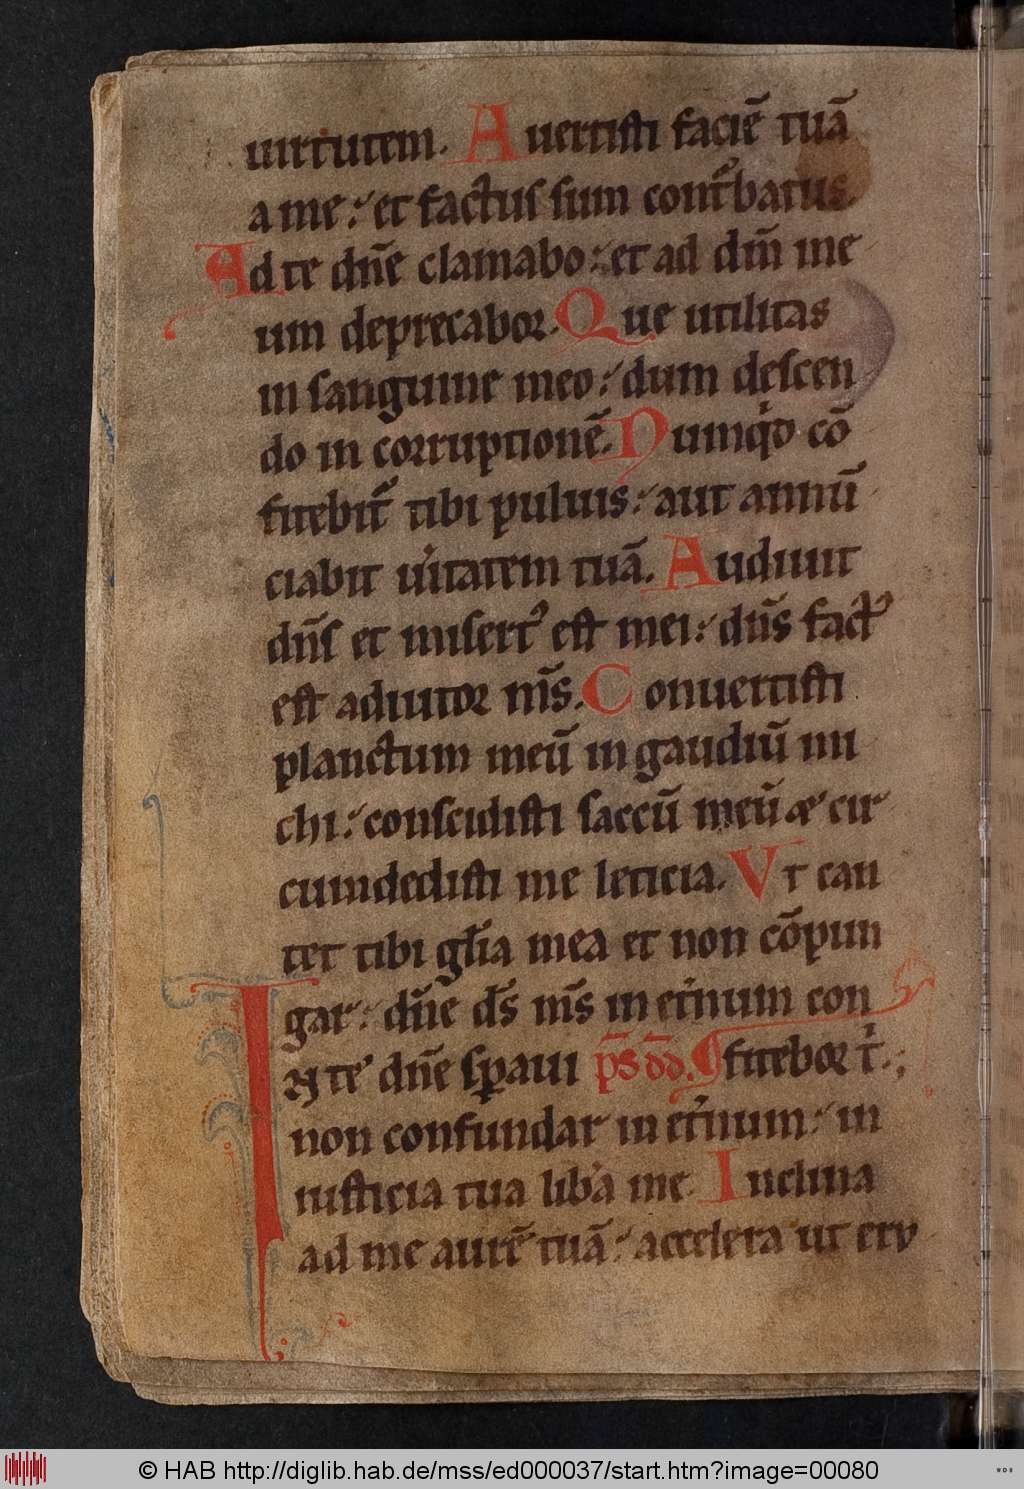 uirtutem. Auertisti faciē tuā
a me: et factus sum cont̾batus.
Ad te dn̄e clamabo: et ad dn̄m me
um deprecabor. Que utilitas
in sanguine meo: dum descen
do in corruptionē. Numqͥd cō
fitebit᷑ tibi puluis: aut annū
ciabit u̾itatem tuā. Audiuit
dn̄s et misert᾽ est mei: dn̄s fact᾽
est adiutor m̄s. Conuertisti
planctum meū in gaudiū mi
chi: conscidisti saccū meū & cir
cumdedisti me leticia. Vt can
tet tibi gl̄ia mea et non cōpun
gar: dn̄e d̄s m̄s in et̾num con
IN te dn̄e sꝑaui p̄s dd̄. ¶ fitebor tͥ.;
non confundar in et̾num: in
iusticia tua lib̾a me. Inclina
ad me aurē tuā: accelera ut eru
© HAB http://diglib.hab.de/mss/ed000037/start.htm?image=00080